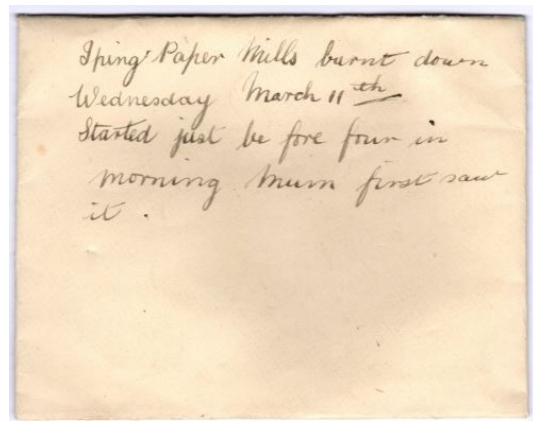 Iping Paper Mills burnt down
Wednesday March 11th
Started just be fore four in
morning Mum first saw
it .